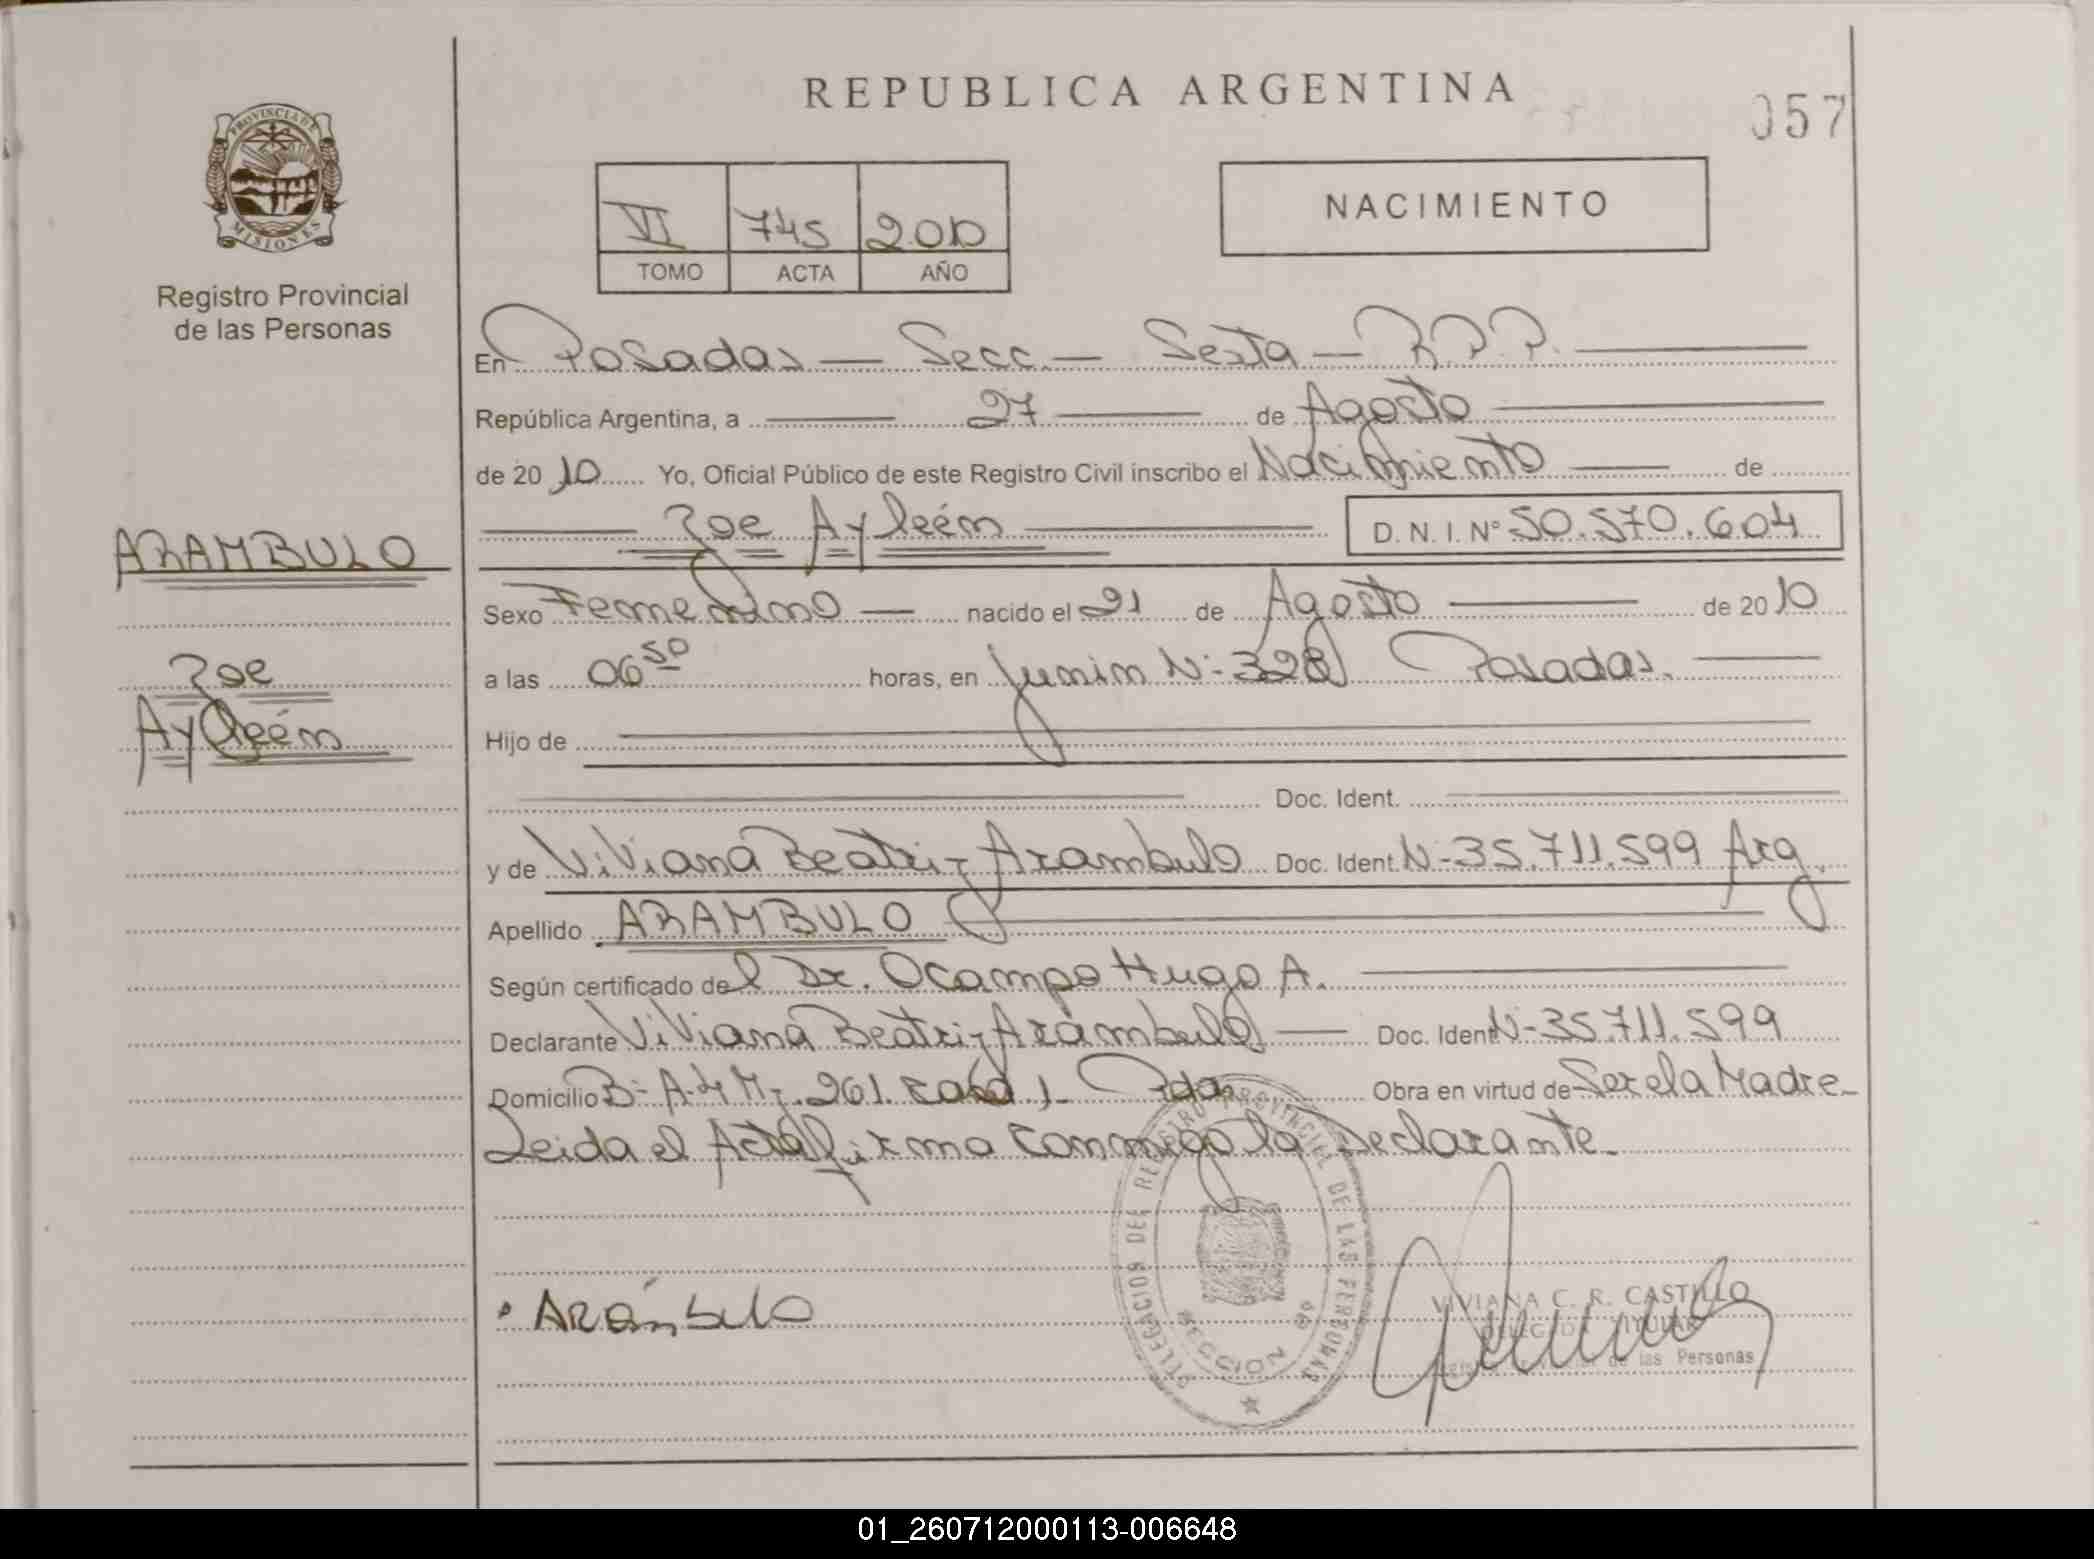 REPUBLICA ARGENTINA
057
PROVINCIA DE
MISIONES
Registro Provincial
de las Personas
VI 745 2010
TOMO ACTA AÑO
NACIMIENTO
En Posadas — Secc. — Sexta — R.P.P.
República Argentina, a 27 de Agosto
de 2010 Yo, Oficial Público de este Registro Civil inscribo el Nacimiento de
Zoe Ayleén D. N. I. Nº 50.570.604
ARAMBULO
Sexo Femenino nacido el 21 de Agosto de 2010
Zoe
a las 06 50 horas, en Junin N: 328 Posadas.
Ayleén
Hijo de
Doc. Ident.
y de Viviana Beatriz Arambulo Doc. Ident. N-35.711.599 Arg.
Apellido ARAMBULO
Según certificado del Dr. Ocampo Hugo A.
Declarante Viviana Beatriz Arámbulo Doc. Ident N-35.711.599
Domicilio B- A-4 Mz. 261. casa 1- Pdas Obra en virtud de Ser la Madre-
Leida el Acta firma conmigo la Declarante-
DELEGACION DEL REGISTRO PROVINCIAL DE LAS PERSONAS
SECCION 6ª
Arámbulo
VIVIANA C. R. CASTILLO
DELEGADA TITULAR
de las Personas
01_260712000113-006648